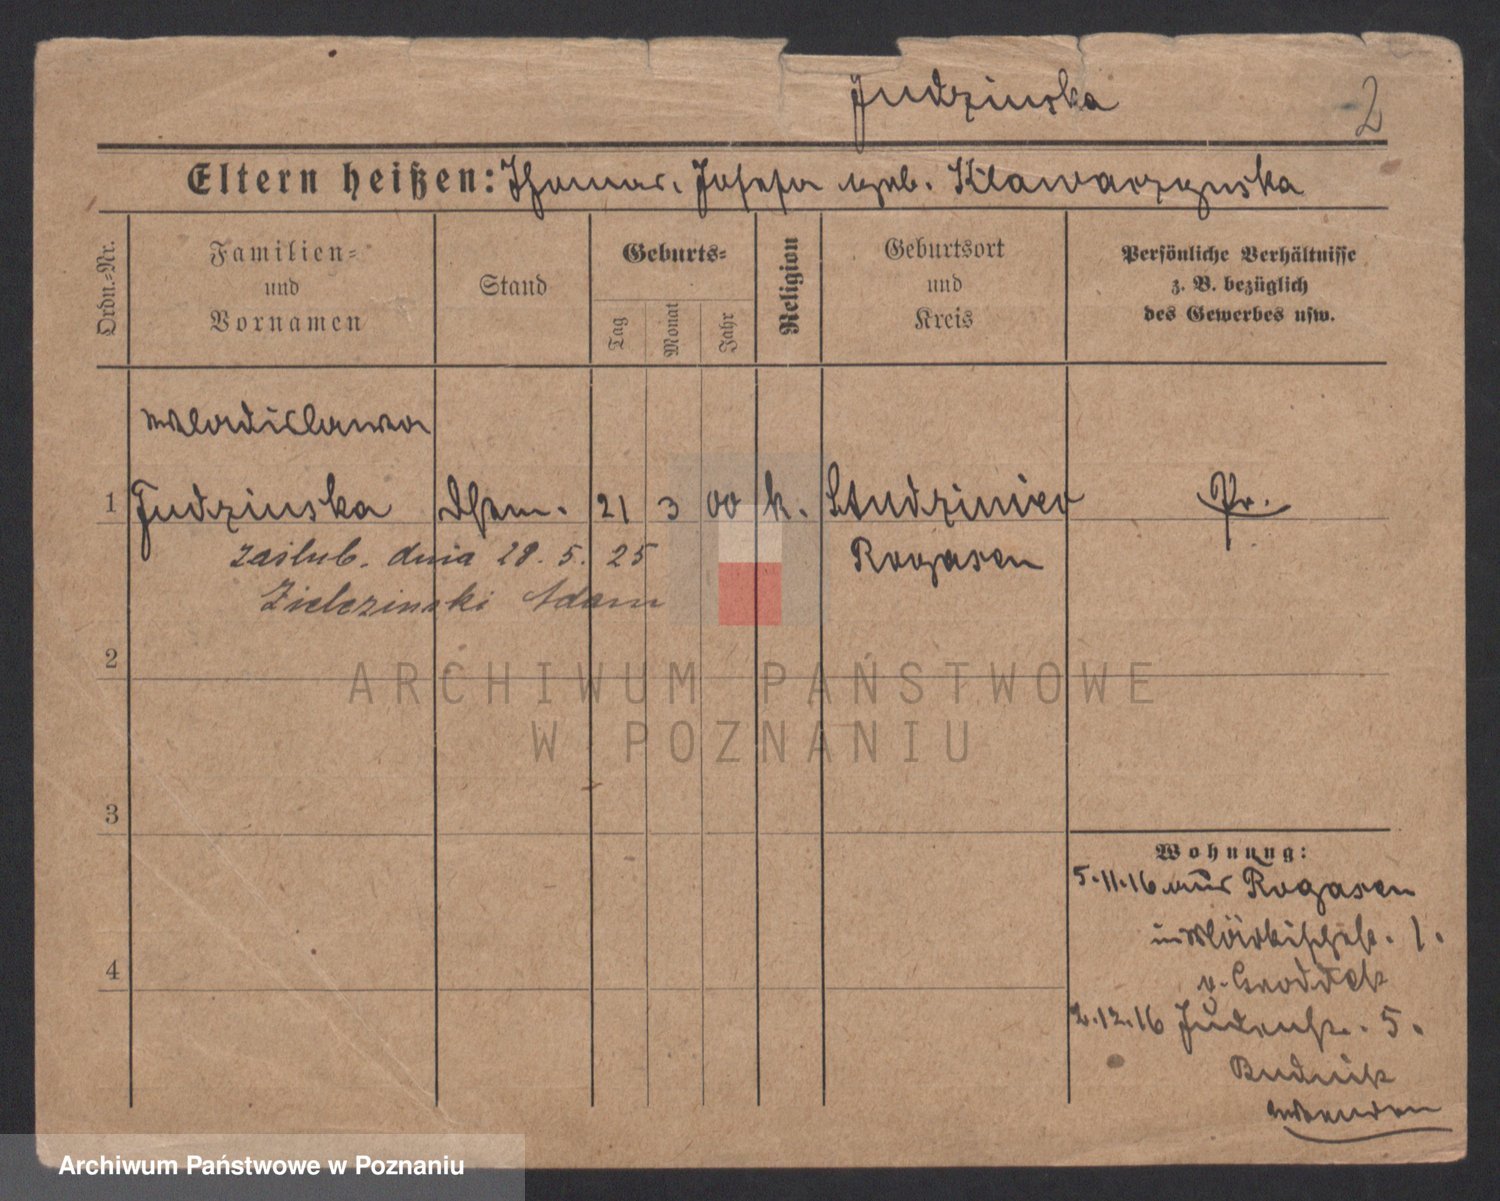 Judzinska
2
Eltern heißen: Thomas, Josefa geb. Klawarzynska
Ordn.=Nr.
Familien=
und
Vornamen
Stand
Geburts=
Tag
Monat
Jahr
Religion
Geburtsort
und
Kreis
Persönliche Verhältnisse
z. B. bezüglich
des Gewerbes usw.
Wladislawa
1 Judzinska 21 3 00 k. Studziniec Pr.
zaślub. dnia 28. 5. 25 Rogasen
Zielezinski Adam
2
ARCHIWUM PAŃSTWOWE
W POZNANIU
3
Wohnung:
5.11.16 aus Rogasen
in Märkischestr. 1.
4
v. Groddek
2.12.16 Judenstr. 5.
Budnik
wenden
Archiwum Państwowe w Poznaniu